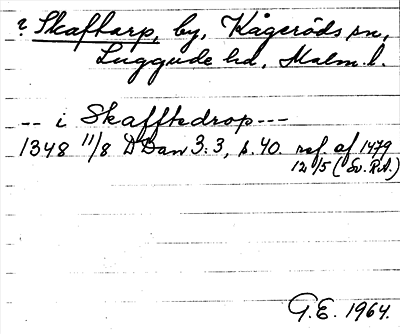 ? Skaftarp, by, Kågeröds sn,
Luggude hd, Malm. l.
-- i Skafftedrop ---
1348 11/8 DDan 3:3, s. 40. ref. af 1479
12/5 (Sv. R.A.)
G.E. 1964.